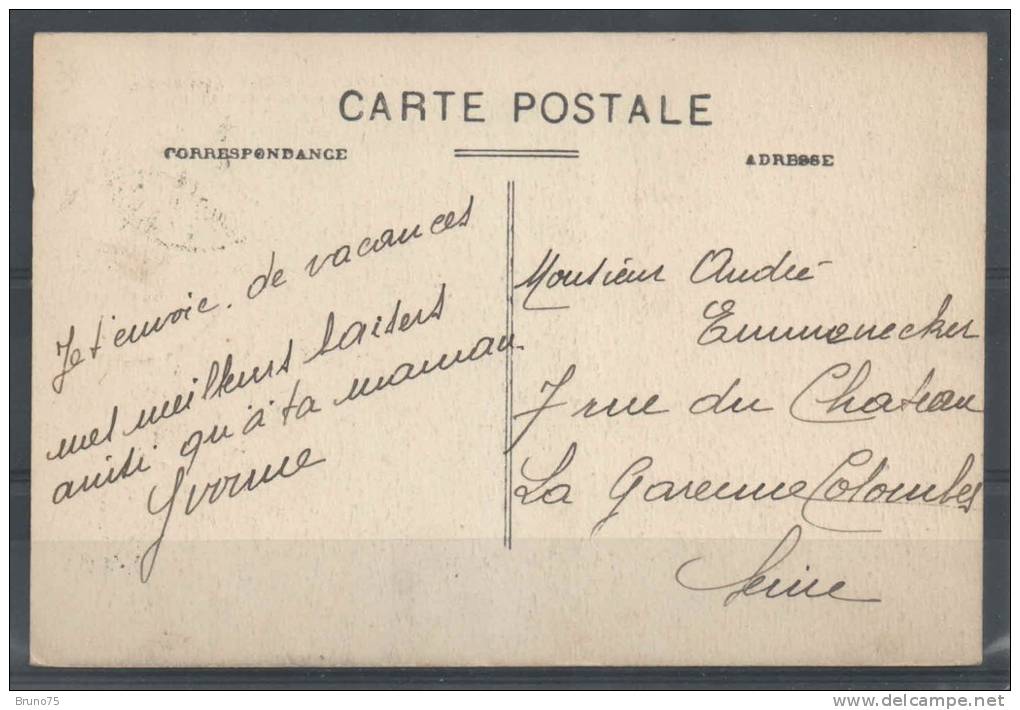 CARTE POSTALE
CORRESPONDANCE
ADRESSE
Je t'envoie de vacances
mes meilleurs baisers
ainsi qu'à ta maman
Yvonne
Monsieur André
Emmonecker
7 rue du Chateau
La Garenne Colombes
Seine
Bruno75
www.delcampe.net